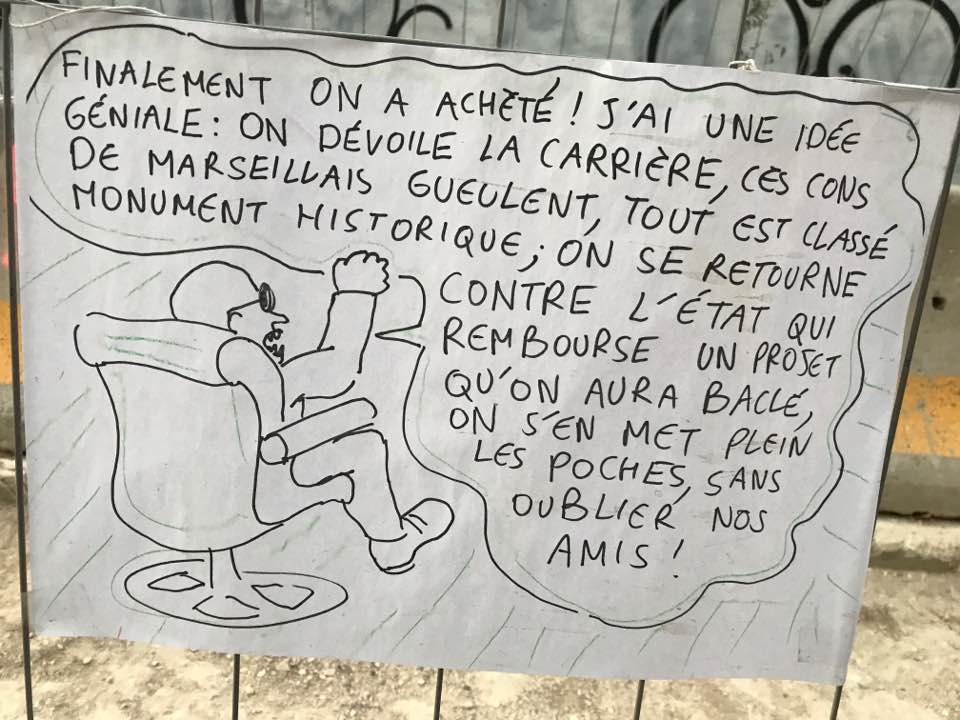 FINALEMENT ON A ACHÈTÉ ! J'AI UNE IDÉE
GÉNIALE : ON DÉVOILE LA CARRIÈRE, CES CONS
DE MARSEILLAIS GUEULENT, TOUT EST CLASSÉ
MONUMENT HISTORIQUE ; ON SE RETOURNE
CONTRE L'ÉTAT QUI
REMBOURSE UN PROJET
QU'ON AURA BACLÉ,
ON S'EN MET PLEIN
LES POCHES, SANS
OUBLIER NOS
AMIS !